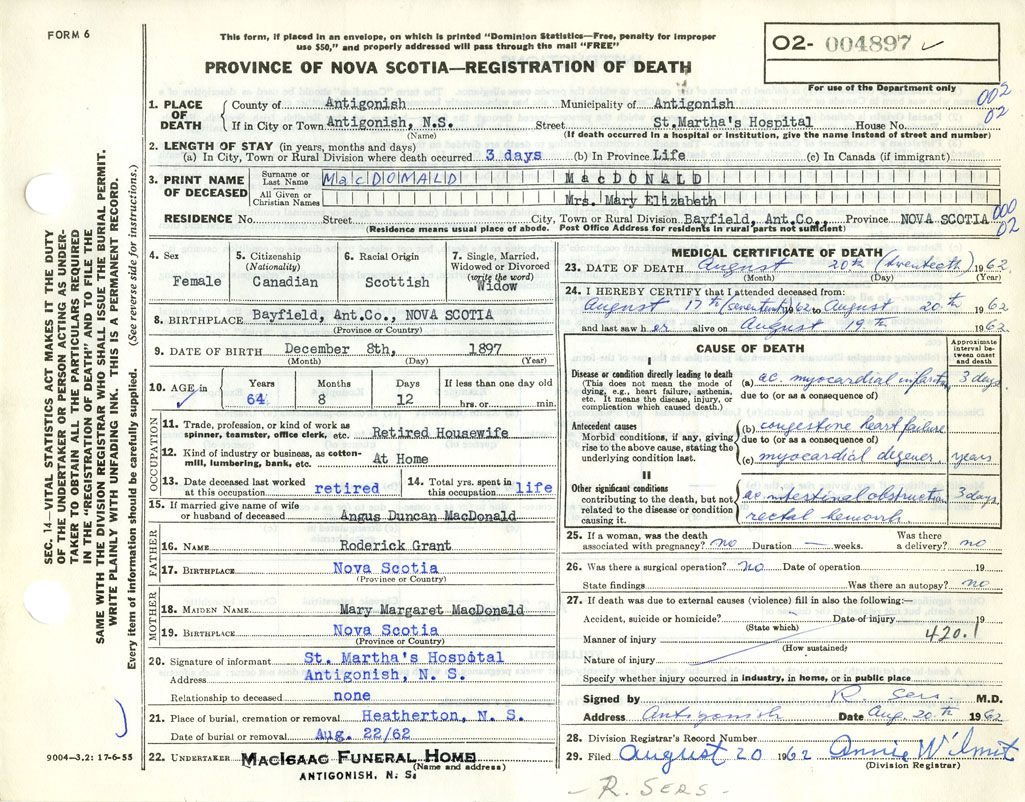 FORM 6
This form, if placed in an envelope, on which is printed "Dominion Statistics—Free, penalty for improper
use $50," and properly addressed will pass through the mail "FREE"
PROVINCE OF NOVA SCOTIA—REGISTRATION OF DEATH
O2- 004897 ✓
For use of the Department only
002
02
1. PLACE OF DEATH
County of Antigonish Municipality of Antigonish
If in City or Town Antigonish, N.S. Street St.Martha's Hospital House No.
(Name) (If death occurred in a hospital or institution, give the name instead of street and number)
2. LENGTH OF STAY (in years, months and days)
(a) In City, Town or Rural Division where death occurred 3 days (b) In Province Life (c) In Canada (if immigrant)
3. PRINT NAME OF DECEASED
Surname or Last Name MacDOMALD MacDONALD
All Given or Christian Names Mrs. Mary Elizabeth
RESIDENCE No. Street City, Town or Rural Division Bayfield, Ant.Co., Province NOVA SCOTIA
(Residence means usual place of abode. Post Office Address for residents in rural parts not sufficient)
000
02
4. Sex
Female
5. Citizenship
(Nationality)
Canadian
6. Racial Origin
Scottish
7. Single, Married, Widowed or Divorced
(write the word)
Widow
8. BIRTHPLACE Bayfield, Ant.Co., NOVA SCOTIA
(Province or Country)
9. DATE OF BIRTH December 8th, 1897
(Month) (Day) (Year)
10. AGE in Years Months Days If less than one day old
✓ 64 8 12 hrs. or min.
OCCUPATION
11. Trade, profession, or kind of work as
spinner, teamster, office clerk, etc. Retired Housewife
12. Kind of industry or business, as cotton-
mill, lumbering, bank, etc. At Home
13. Date deceased last worked
at this occupation retired
14. Total yrs. spent in
this occupation life
15. If married give name of wife
or husband of deceased Angus Duncan MacDonald
FATHER
16. NAME Roderick Grant
17. BIRTHPLACE Nova Scotia
(Province or Country)
MOTHER
18. MAIDEN NAME Mary Margaret MacDonald
19. BIRTHPLACE Nova Scotia
(Province or Country)
20. Signature of informant St. Martha's Hospital
Address Antigonish, N. S.
Relationship to deceased none
21. Place of burial, cremation or removal Heatherton, N. S.
Date of burial or removal Aug. 22/62
22. UNDERTAKER MacIsaac Funeral Home
(Name and address)
ANTIGONISH, N. S.
MEDICAL CERTIFICATE OF DEATH
23. DATE OF DEATH August 20th (twentieth) 1962
(Month) (Day) (Year)
24. I HEREBY CERTIFY that I attended deceased from:
August 17th 1962 to August 20th 1962
and last saw her alive on August 19th 1962
CAUSE OF DEATH
Approximate interval between onset and death
I
Disease or condition directly leading to death
(This does not mean the mode of
dying, e.g., heart failure, asthenia,
etc. It means the disease, injury, or
complication which caused death.)
(a) ac. myocardial infarction 3 days
due to (or as a consequence of)
Antecedent causes
Morbid conditions, if any, giving
rise to the above cause, stating the
underlying condition last.
(b) congestive heart failure
due to (or as a consequence of)
(c) myocardial degener. years
II
Other significant conditions
contributing to the death, but not
related to the disease or condition
causing it.
ac. intestinal obstruction 3 days
rectal hemorrh.
25. If a woman, was the death
associated with pregnancy? no Duration — weeks. Was there
a delivery? no
26. Was there a surgical operation? no Date of operation 19
State findings Was there an autopsy? no
27. If death was due to external causes (violence) fill in also the following:—
Accident, suicide or homicide? Date of injury 19
(State which)
420.1
Manner of injury
(How sustained)
Nature of injury
Specify whether injury occurred in industry, in home, or in public place
Signed by R. Sers. M.D.
Address Antigonish Date Aug. 20th 1962
28. Division Registrar's Record Number
29. Filed August 20 1962 Annie Wilmit
(Division Registrar)
- R. SERS -
SEC. 14—VITAL STATISTICS ACT MAKES IT THE DUTY
OF THE UNDERTAKER OR PERSON ACTING AS UNDER-
TAKER TO OBTAIN ALL THE PARTICULARS REQUIRED
IN THE "REGISTRATION OF DEATH" AND TO FILE THE
SAME WITH THE DIVISION REGISTRAR WHO SHALL ISSUE THE BURIAL PERMIT.
WRITE PLAINLY WITH UNFADING INK. THIS IS A PERMANENT RECORD.
Every item of information should be carefully supplied. (See reverse side for instructions.)
9004—3.2: 17-6-55